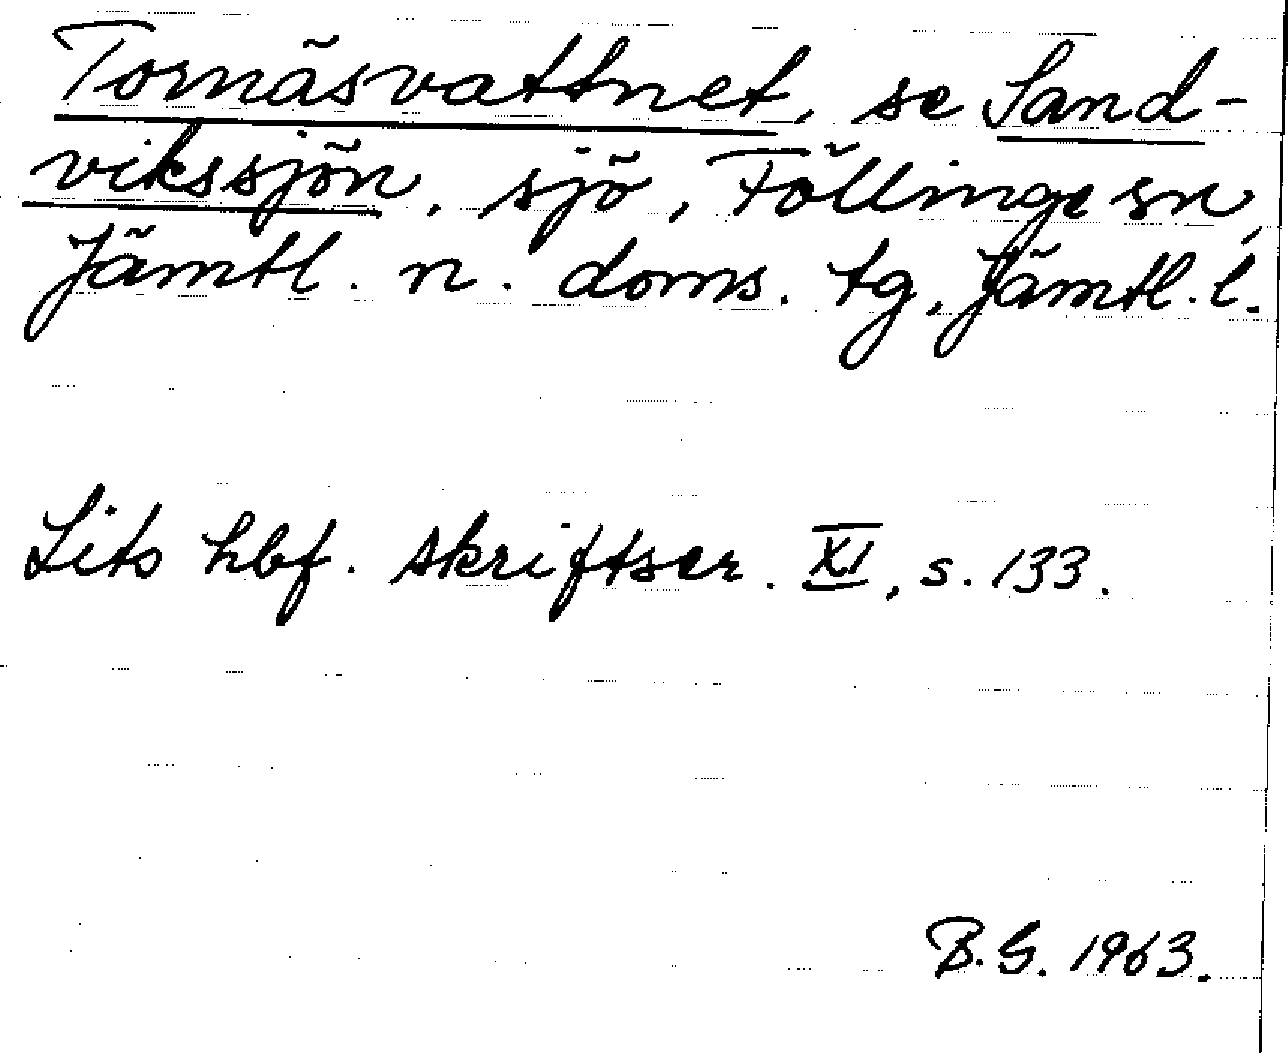 Tornäsvattnet, se Sand-
vikssjön, sjö, Föllinge sn,
Jämtl. n. doms. tg, Jämtl. l.
Lits hbf. skriftser. XI, s. 133.
B.G. 1963.